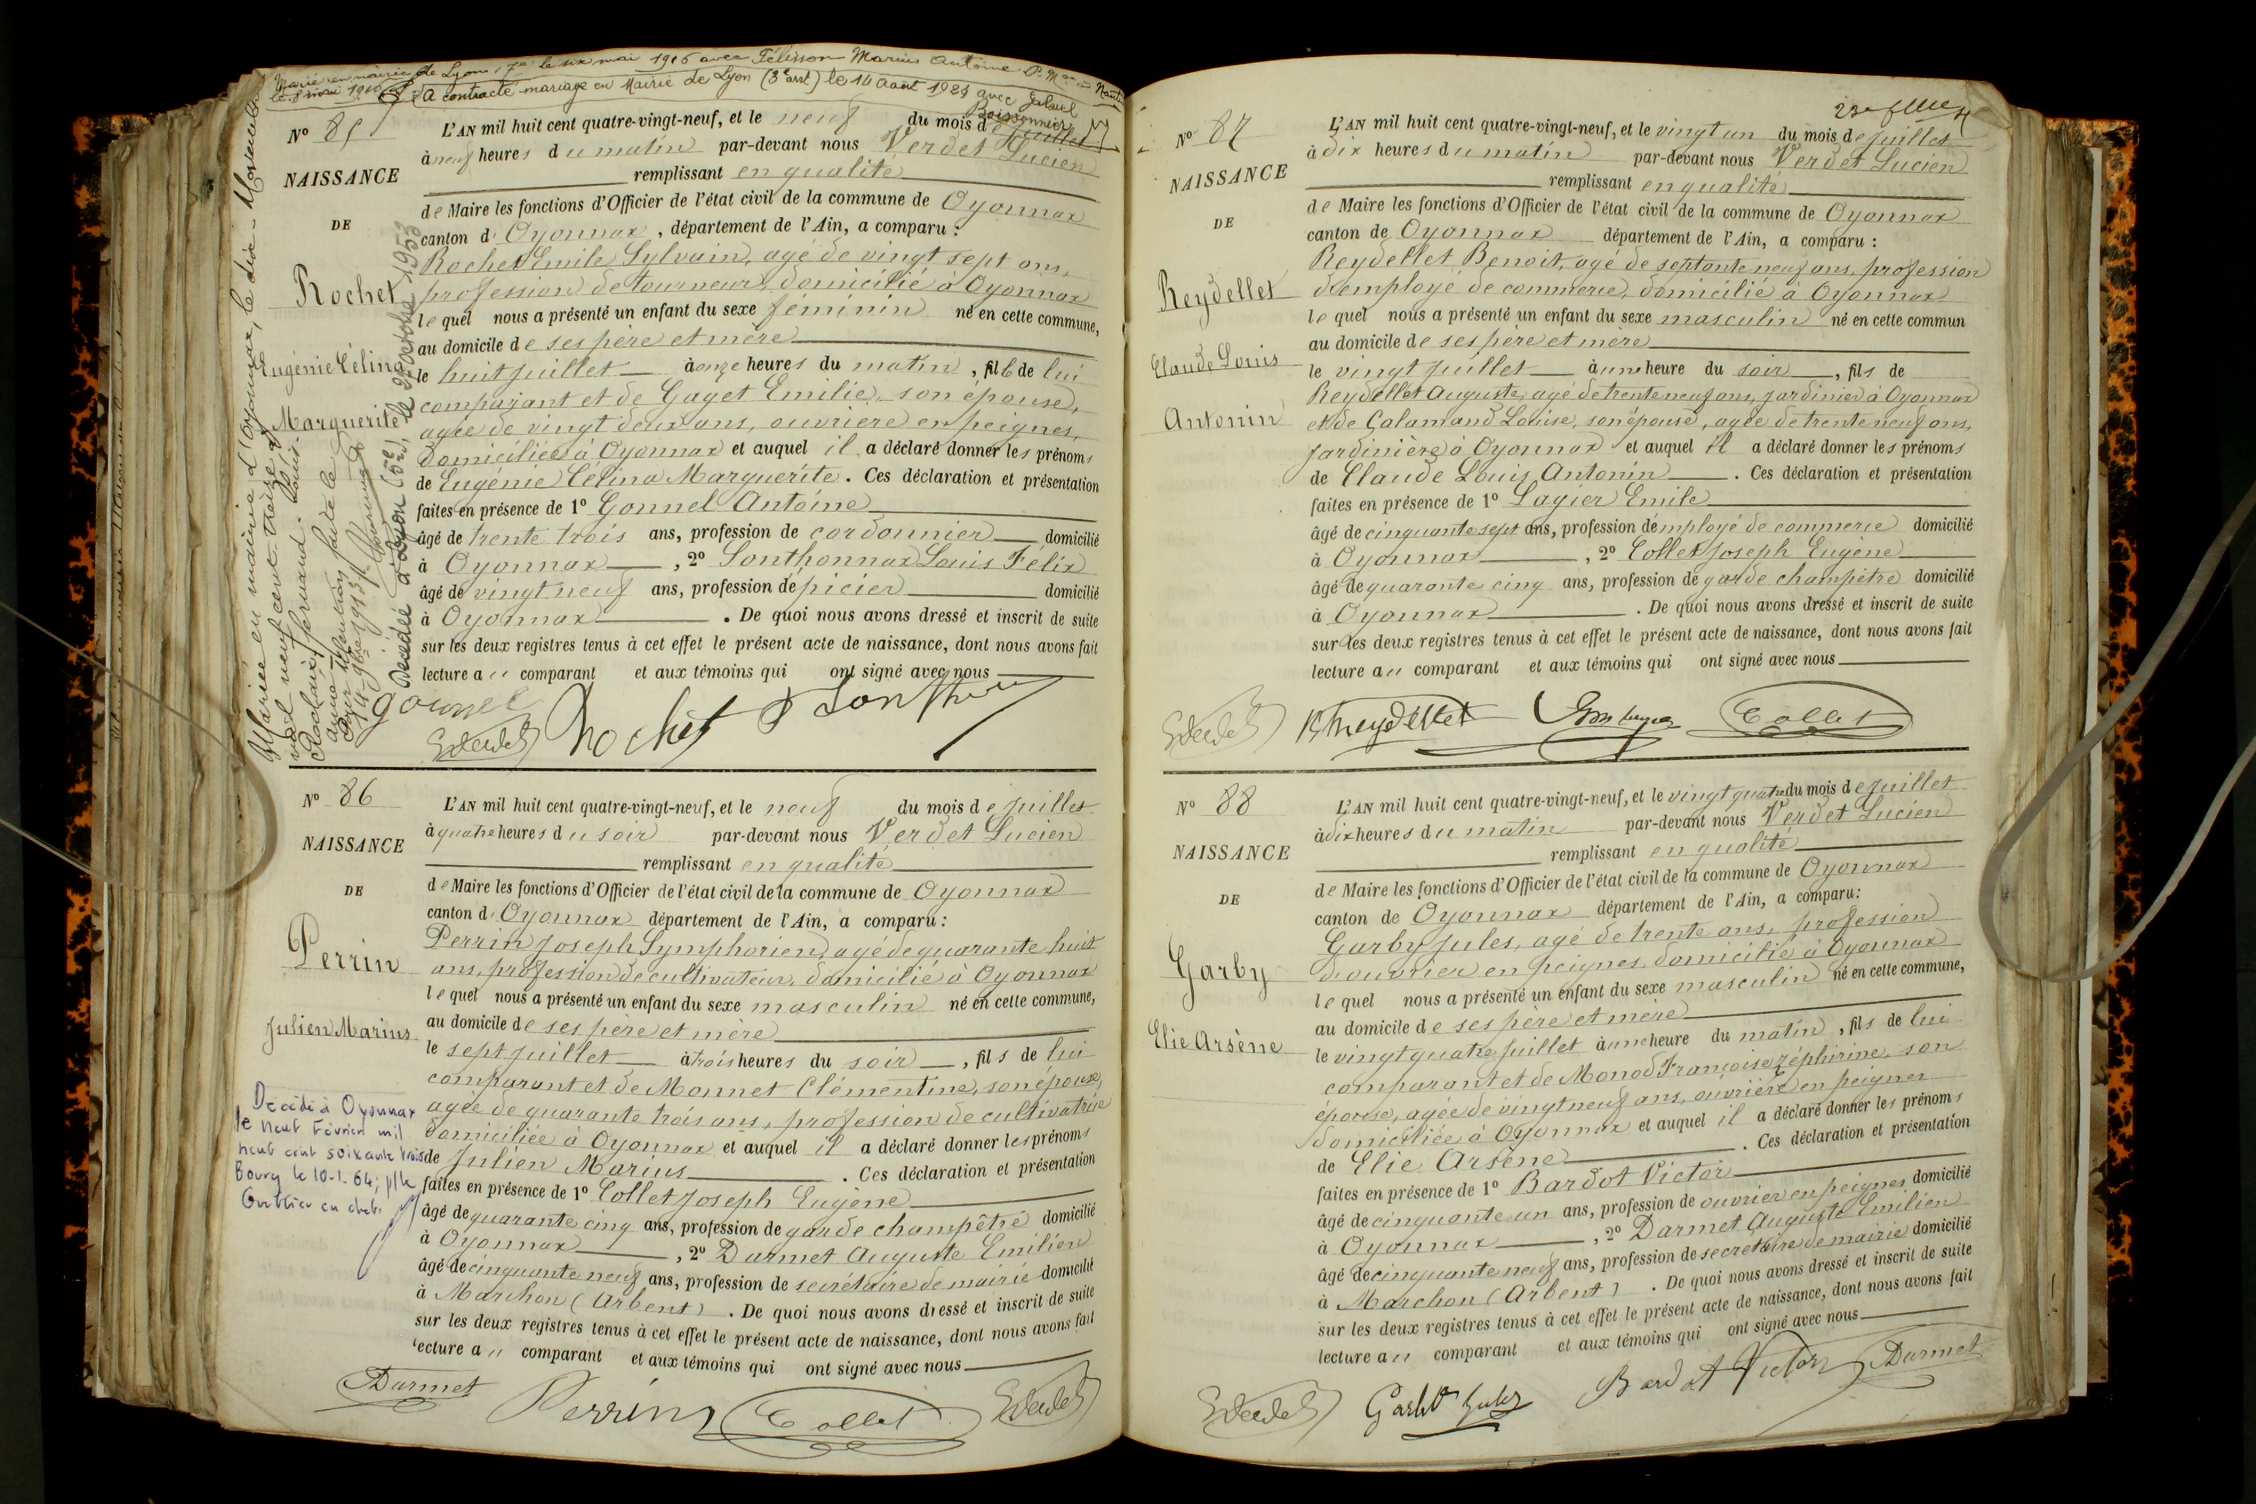 Marié en mairie de Lyon, 7e le six mai 1916 avec Félisson Marius Antoine
le 8 mai 1916
A contracté mariage en Mairie de Lyon (3e arrt) le 14 Août 1924 avec
Boissonnier
N° 85
NAISSANCE
DE
Rochet
Eugénie Célina
Marguerite
Mariée en mairie d'Oyonnax, le dix-
mil neuf cent treize
Rochaix Fernand Louis
Pour mention faite le
Décédée à Lyon (5e) le octobre 1953
L'AN mil huit cent quatre-vingt-neuf, et le neuf du mois de juillet
à neuf heures du matin par-devant nous Verdet Lucien
remplissant en qualité
de Maire les fonctions d'Officier de l'état civil de la commune de Oyonnax
canton d'Oyonnax, département de l'Ain, a comparu :
Rochet Emile Sylvain, agé de vingt sept ans,
profession de tourneur, domicilié à Oyonnax
lequel nous a présenté un enfant du sexe féminin né en cette commune,
au domicile de ses père et mère
le huit juillet à onze heures du matin, fille de lui
comparant et de Gaget Emilie, son épouse,
agée de vingt deux ans, ouvrière en peignes,
domiciliée à Oyonnax et auquel il a déclaré donner les prénoms
de Eugénie Célina Marguerite. Ces déclaration et présentation
faites en présence de 1° Gonnel Antoine
âgé de trente trois ans, profession de cordonnier domicilié
à Oyonnax, 2° Sonthonnax Louis Félix
âgé de vingt neuf ans, profession d'épicier domicilié
à Oyonnax. De quoi nous avons dressé et inscrit de suite
sur les deux registres tenus à cet effet le présent acte de naissance, dont nous avons fait
lecture au comparant et aux témoins qui ont signé avec nous
Gonnel
Rochet
N° 86
NAISSANCE
DE
Perrin
Julien Marius
Décédé à Oyonnax
le neuf février mil
neuf cent soixante trois
Bourg le 10-1-64; p/le
Greffier en chef.
L'AN mil huit cent quatre-vingt-neuf, et le neuf du mois de juillet
à quatre heures du soir par-devant nous Verdet Lucien
remplissant en qualité
de Maire les fonctions d'Officier de l'état civil de la commune de Oyonnax
canton d'Oyonnax département de l'Ain, a comparu :
Perrin Joseph Symphorien, agé de quarante huit
ans, profession de cultivateur, domicilié à Oyonnax
lequel nous a présenté un enfant du sexe masculin né en cette commune,
au domicile de ses père et mère
le sept juillet à trois heures du soir, fils de lui
comparant et de Monnet Clémentine, son épouse,
agée de quarante trois ans, profession de cultivatrice
domiciliée à Oyonnax et auquel il a déclaré donner les prénoms
de Julien Marius. Ces déclaration et présentation
faites en présence de 1° Collet Joseph Eugène
âgé de quarante cinq ans, profession de garde champêtre domicilié
à Oyonnax, 2° Darmet Auguste Emilien
âgé de cinquante neuf ans, profession de secrétaire de mairie domicilié
à Marchon (Arbent). De quoi nous avons dressé et inscrit de suite
sur les deux registres tenus à cet effet le présent acte de naissance, dont nous avons fait
lecture au comparant et aux témoins qui ont signé avec nous
Darmet
Perrin
Collet
N° 87
NAISSANCE
DE
Reydellet
Claude Louis
Antonin
L'AN mil huit cent quatre-vingt-neuf, et le vingt un du mois de juillet
à dix heures du matin par-devant nous Verdet Lucien
remplissant en qualité
de Maire les fonctions d'Officier de l'état civil de la commune de Oyonnax
canton de Oyonnax département de l'Ain, a comparu :
Reydellet Benoit, agé de septante neuf ans, profession
d'employé de commerce, domicilié à Oyonnax
lequel nous a présenté un enfant du sexe masculin né en cette commun
au domicile de ses père et mère
le vingt juillet à une heure du soir, fils de
Reydellet Auguste, agé de trente neuf ans, jardinier à Oyonnax
et de Calamand Louise, son épouse, agée de trente neuf ans,
jardinière à Oyonnax et auquel il a déclaré donner les prénoms
de Claude Louis Antonin. Ces déclaration et présentation
faites en présence de 1° Lagier Emile
âgé de cinquante sept ans, profession d'employé de commerce domicilié
à Oyonnax, 2° Collet Joseph Eugène
âgé de quarante cinq ans, profession de garde champêtre domicilié
à Oyonnax. De quoi nous avons dressé et inscrit de suite
sur les deux registres tenus à cet effet le présent acte de naissance, dont nous avons fait
lecture au comparant et aux témoins qui ont signé avec nous
Reydellet
Collet
N° 88
NAISSANCE
DE
Garby
Elie Arsène
L'AN mil huit cent quatre-vingt-neuf, et le vingt quatre du mois de juillet
à dix heures du matin par-devant nous Verdet Lucien
remplissant en qualité
de Maire les fonctions d'Officier de l'état civil de la commune de Oyonnax
canton de Oyonnax département de l'Ain, a comparu :
Garby Jules, agé de trente ans, profession
d'ouvrier en peignes, domicilié à Oyonnax
lequel nous a présenté un enfant du sexe masculin né en cette commune,
au domicile de ses père et mère
le vingt quatre juillet à une heure du matin, fils de lui
comparant et de Monod Françoise Zéphirine, son
épouse, agée de vingt neuf ans, ouvrière en peignes
domiciliée à Oyonnax et auquel il a déclaré donner les prénoms
de Elie Arsène. Ces déclaration et présentation
faites en présence de 1° Bardot Victor
âgé de cinquante un ans, profession de ouvrier en peignes domicilié
à Oyonnax, 2° Darmet Auguste Emilien
âgé de cinquante neuf ans, profession de secretaire de mairie domicilié
à Marchon (Arbent). De quoi nous avons dressé et inscrit de suite
sur les deux registres tenus à cet effet le présent acte de naissance, dont nous avons fait
lecture au comparant et aux témoins qui ont signé avec nous
Garby Jules
Bardot Victor
Darmet